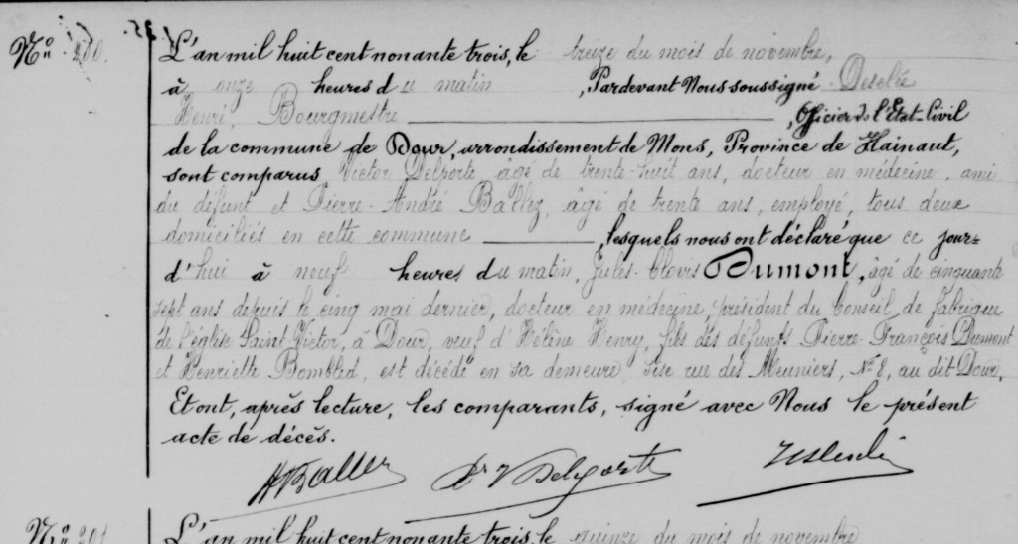 35.
No. 200.
L'an mil huit cent nonante trois, le treize du mois de novembre,
à onze heures du matin, Pardevant Nous soussigné Desclée
Henri, Bourgmestre, Officier de l'Etat-Civil
de la commune de Dour, arrondissement de Mons, Province de Hainaut,
sont comparus Victor Delporte, âgé de trente-huit ans, docteur en médecine, ami
du défunt et Pierre-André Ballez, âgé de trente ans, employé, tous deux
domiciliés en cette commune, lesquels nous ont déclaré que ce jour-
d'hui à neuf heures du matin, Jules-Clovis Dumont, âgé de cinquante
sept ans depuis le cinq mai dernier, docteur en médecine, président du Conseil de fabrique
de l'église Saint Victor, à Dour, veuf d'Hélène Henry, fils des défunts Pierre-François Dumont
et Henriette Bombled, est décédé en sa demeure, sise rue des Meuniers, No. 8, au dit Dour.
Et ont, après lecture, les comparants, signé avec Nous le présent
acte de décès.
Ballez Dr V Delporte
No. 201
L'an mil huit cent nonante trois, le quinze du mois de novembre